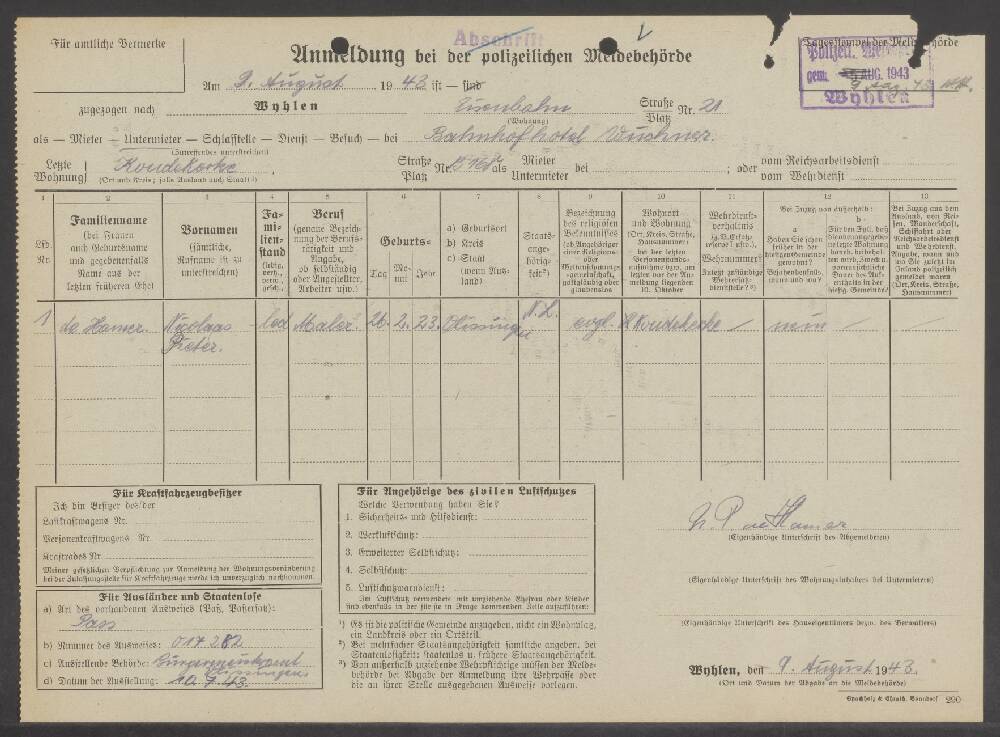 Für amtliche Vermerke
Abschrift
Anmeldung bei der polizeilichen Meldebehörde
Tagesstempel der Meldebehörde
Polizeil. Melde
gem. AUG. 1943
Wyhlen
Am 9. August 1943 ist — sind
zugezogen nach Wyhlen Eisenbahn Straße Platz Nr. 21
(Wohnung)
als — Mieter — Untermieter — Schlafstelle — Dienst — Besuch — bei Bahnhofhotel Buchner.
(Zutreffendes unterstreichen)
Letzte Wohnung Koudekerke Straße Platz Nr. B 165 als Mieter Untermieter bei ; oder vom Reichsarbeitsdienst vom Wehrdienst
(Ort und Kreis; falls Ausland auch Staat)
1 2 3 4 5 6 7 8 9 10 11 12 13
Lfd. Nr.
Familienname (bei Frauen auch Geburtsname und gegebenenfalls Name aus der letzten früheren Ehe)
Vornamen (sämtliche, Rufname ist zu unterstreichen)
Familienstand (ledig, verh., verw., gesch.)
Beruf (genaue Bezeichnung der Berufstätigkeit und Angabe, ob selbständig oder Angestellter, Arbeiter usw.)
Geburts- Tag Monat Jahr
a) Geburtsort b) Kreis c) Staat (wenn Ausland)
Staatsangehörigkeit²)
Bezeichnung des religiösen Bekenntnisses (ob Angehöriger einer Religions- oder Weltanschauungsgemeinschaft, gottgläubig oder glaubenslos)
Wohnort und Wohnung (Ort, Kreis, Straße, Hausnummer) bei der letzten Personenstandsaufnahme bzw. am letzten vor der Anmeldung liegenden 10. Oktober
Bei Zuzug von außerhalb:
a Haben Sie schon früher in der hiesigen Gemeinde gewohnt? Bejahendenfalls, wann und wo?
1 de Hamer. Nicolaas Pieter. led Maler. 26. 2. 23. Vlissingen N.L. evgl. Koudekerke — nein — —
Für Kraftfahrzeugbesitzer
Ich bin Besitzer des/der
Lastkraftwagens Nr.
Personenkraftwagens Nr.
Kraftrades Nr.
Meiner gesetzlichen Verpflichtung zur Anmeldung der Wohnungsveränderung
bei der Zulassungsstelle für Kraftfahrzeuge werde ich unverzüglich nachkommen.
Für Ausländer und Staatenlose
a) Art des vorhandenen Ausweises (Paß, Paßersatz):
Pass
b) Nummer des Ausweises: 017282
c) Ausstellende Behörde: Vlissingen
d) Datum der Ausstellung: 10.7.43.
Für Angehörige des zivilen Luftschutzes
Welche Verwendung haben Sie?
1. Sicherheits- und Hilfsdienst:
2. Werkluftschutz:
3. Erweiterter Selbstschutz:
4. Selbstschutz:
5. Luftschutzwarndienst:
Im Luftschutz verwendete mit umziehende Ehefrau oder Kinder
sind ebenfalls in der für sie in Frage kommenden Zeile aufzuführen:
¹) Es ist die politische Gemeinde anzugeben, nicht ein Wohnplatz,
ein Landkreis oder ein Ortsteil.
²) Bei mehrfacher Staatsangehörigkeit sämtliche angeben, bei
Staatenlosigkeit: staatenlos u. frühere Staatsangehörigkeit.
³) Von außerhalb zuziehende Wehrpflichtige müssen der Meldebehörde
bei Abgabe der Anmeldung ihre Wehrpässe oder
die an ihrer Stelle ausgegebenen Ausweise vorlegen.
N. P. de Hamer
(Eigenhändige Unterschrift des Abgemeldeten)
(Eigenhändige Unterschrift des Wohnungsinhabers bei Untermietern)
(Eigenhändige Unterschrift des Hauseigentümers bezw. des Verwalters)
Wyhlen, den 9. August 1943.
(Ort und Datum der Abgabe an die Meldebehörde)
290